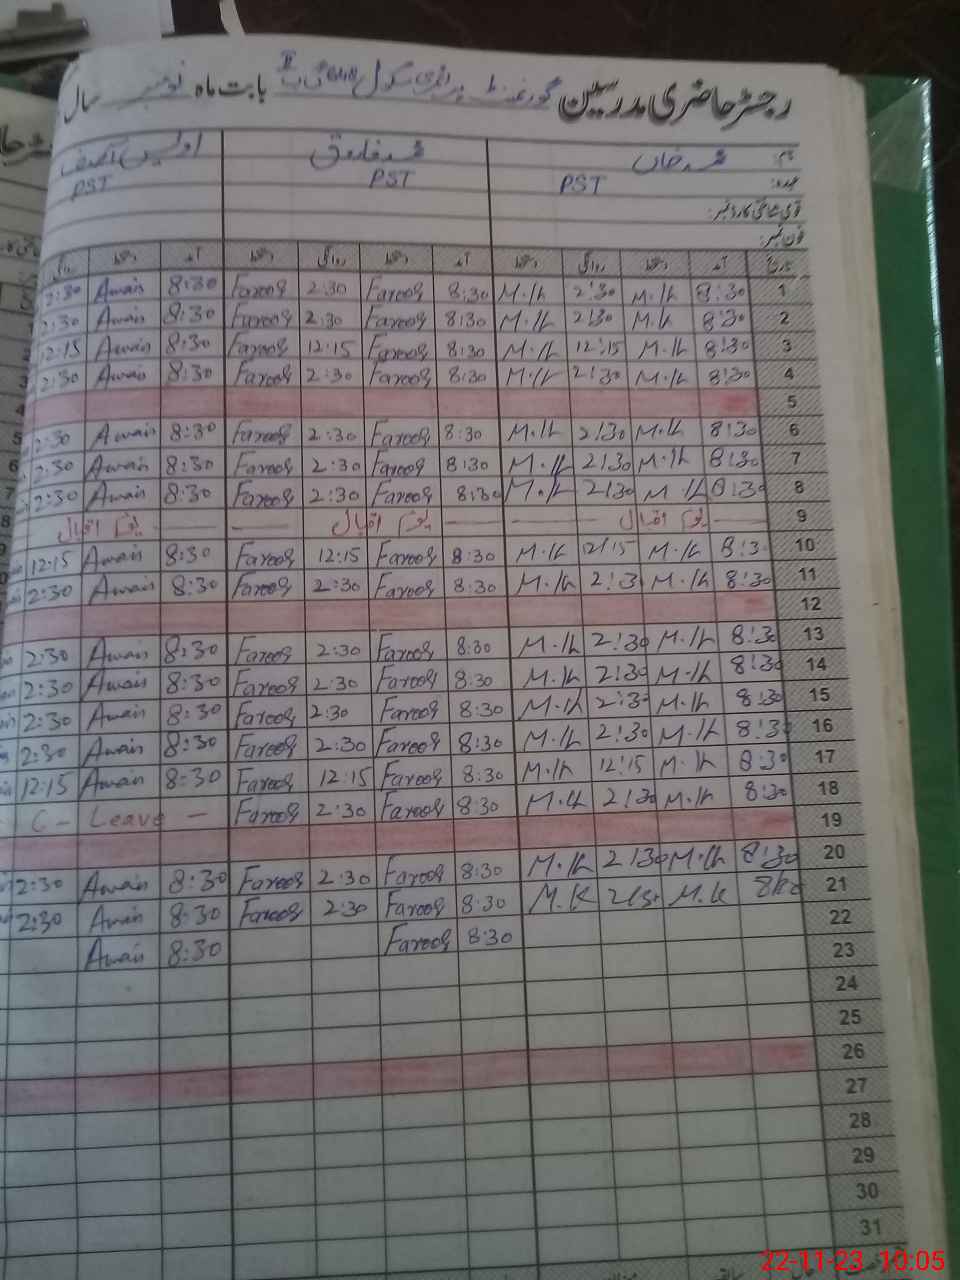 رجسٹر حاضری مدرسین گورنمنٹ پرائمری سکول گ ب بابت ماہ نومبر سال
نام: محمد خاں محمد فاروق اویس آصف
عہدہ: PST PST PST
قومی شناختی کارڈ نمبر:
فون نمبر:
تاریخ آمد دستخط روانگی دستخط آمد دستخط روانگی دستخط آمد دستخط روانگی
1 8:30 M.Kh 2:30 M.Kh 8:30 Farooq 2:30 Farooq 8:30 Awais 2:30
2 8:30 M.Kh 2:30 M.Kh 8:30 Farooq 2:30 Farooq 8:30 Awais 2:30
3 8:30 M.Kh 12:15 M.Kh 8:30 Farooq 12:15 Farooq 8:30 Awais 12:15
4 8:30 M.Kh 2:30 M.Kh 8:30 Farooq 2:30 Farooq 8:30 Awais 2:30
5
6 8:30 M.Kh 2:30 M.Kh 8:30 Farooq 2:30 Farooq 8:30 Awais 2:30
7 8:30 M.Kh 2:30 M.Kh 8:30 Farooq 2:30 Farooq 8:30 Awais 2:30
8 8:30 M.Kh 2:30 M.Kh 8:30 Farooq 2:30 Farooq 8:30 Awais 2:30
9 یوم اقبال یوم اقبال یوم اقبال
10 8:30 M.Kh 12:15 M.Kh 8:30 Farooq 12:15 Farooq 8:30 Awais 12:15
11 8:30 M.Kh 2:30 M.Kh 8:30 Farooq 2:30 Farooq 8:30 Awais 2:30
12
13 8:30 M.Kh 2:30 M.Kh 8:30 Farooq 2:30 Farooq 8:30 Awais 2:30
14 8:30 M.Kh 2:30 M.Kh 8:30 Farooq 2:30 Farooq 8:30 Awais 2:30
15 8:30 M.Kh 2:30 M.Kh 8:30 Farooq 2:30 Farooq 8:30 Awais 2:30
16 8:30 M.Kh 2:30 M.Kh 8:30 Farooq 2:30 Farooq 8:30 Awais 2:30
17 8:30 M.Kh 12:15 M.Kh 8:30 Farooq 12:15 Farooq 8:30 Awais 12:15
18 8:30 M.Kh 2:30 M.Kh 8:30 Farooq 2:30 Farooq C - Leave -
19
20 8:30 M.Kh 2:30 M.Kh 8:30 Farooq 2:30 Farooq 8:30 Awais 2:30
21 M.K M.K 8:30 Farooq 2:30 Farooq 8:30 Awais 2:30
22 8:30 Farooq 8:30 Awais
23
24
25
26
27
28
29
30
31
22-11-23 10:05